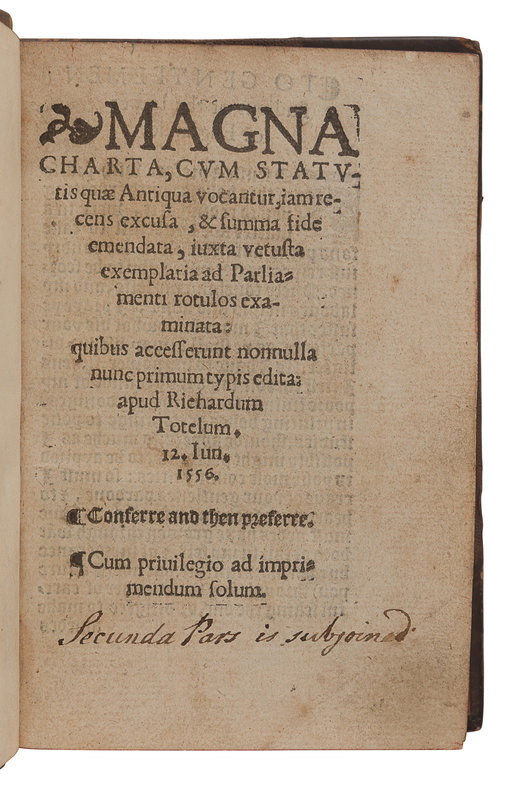 MAGNA
CHARTA, CVM STATV-
tis quæ Antiqua vocantur, iam re-
cens excusa, & summa fide
emendata, iuxta vetusta
exemplaria ad Parlia-
menti rotulos exa-
minata:
quibus accesserunt nonnulla
nunc primum typis edita:
apud Richardum
Totelum.
12. Iun.
1556.
¶ Conferre and then preferre.
¶ Cum priuilegio ad impri-
mendum solum.
Secunda Pars is subjoined